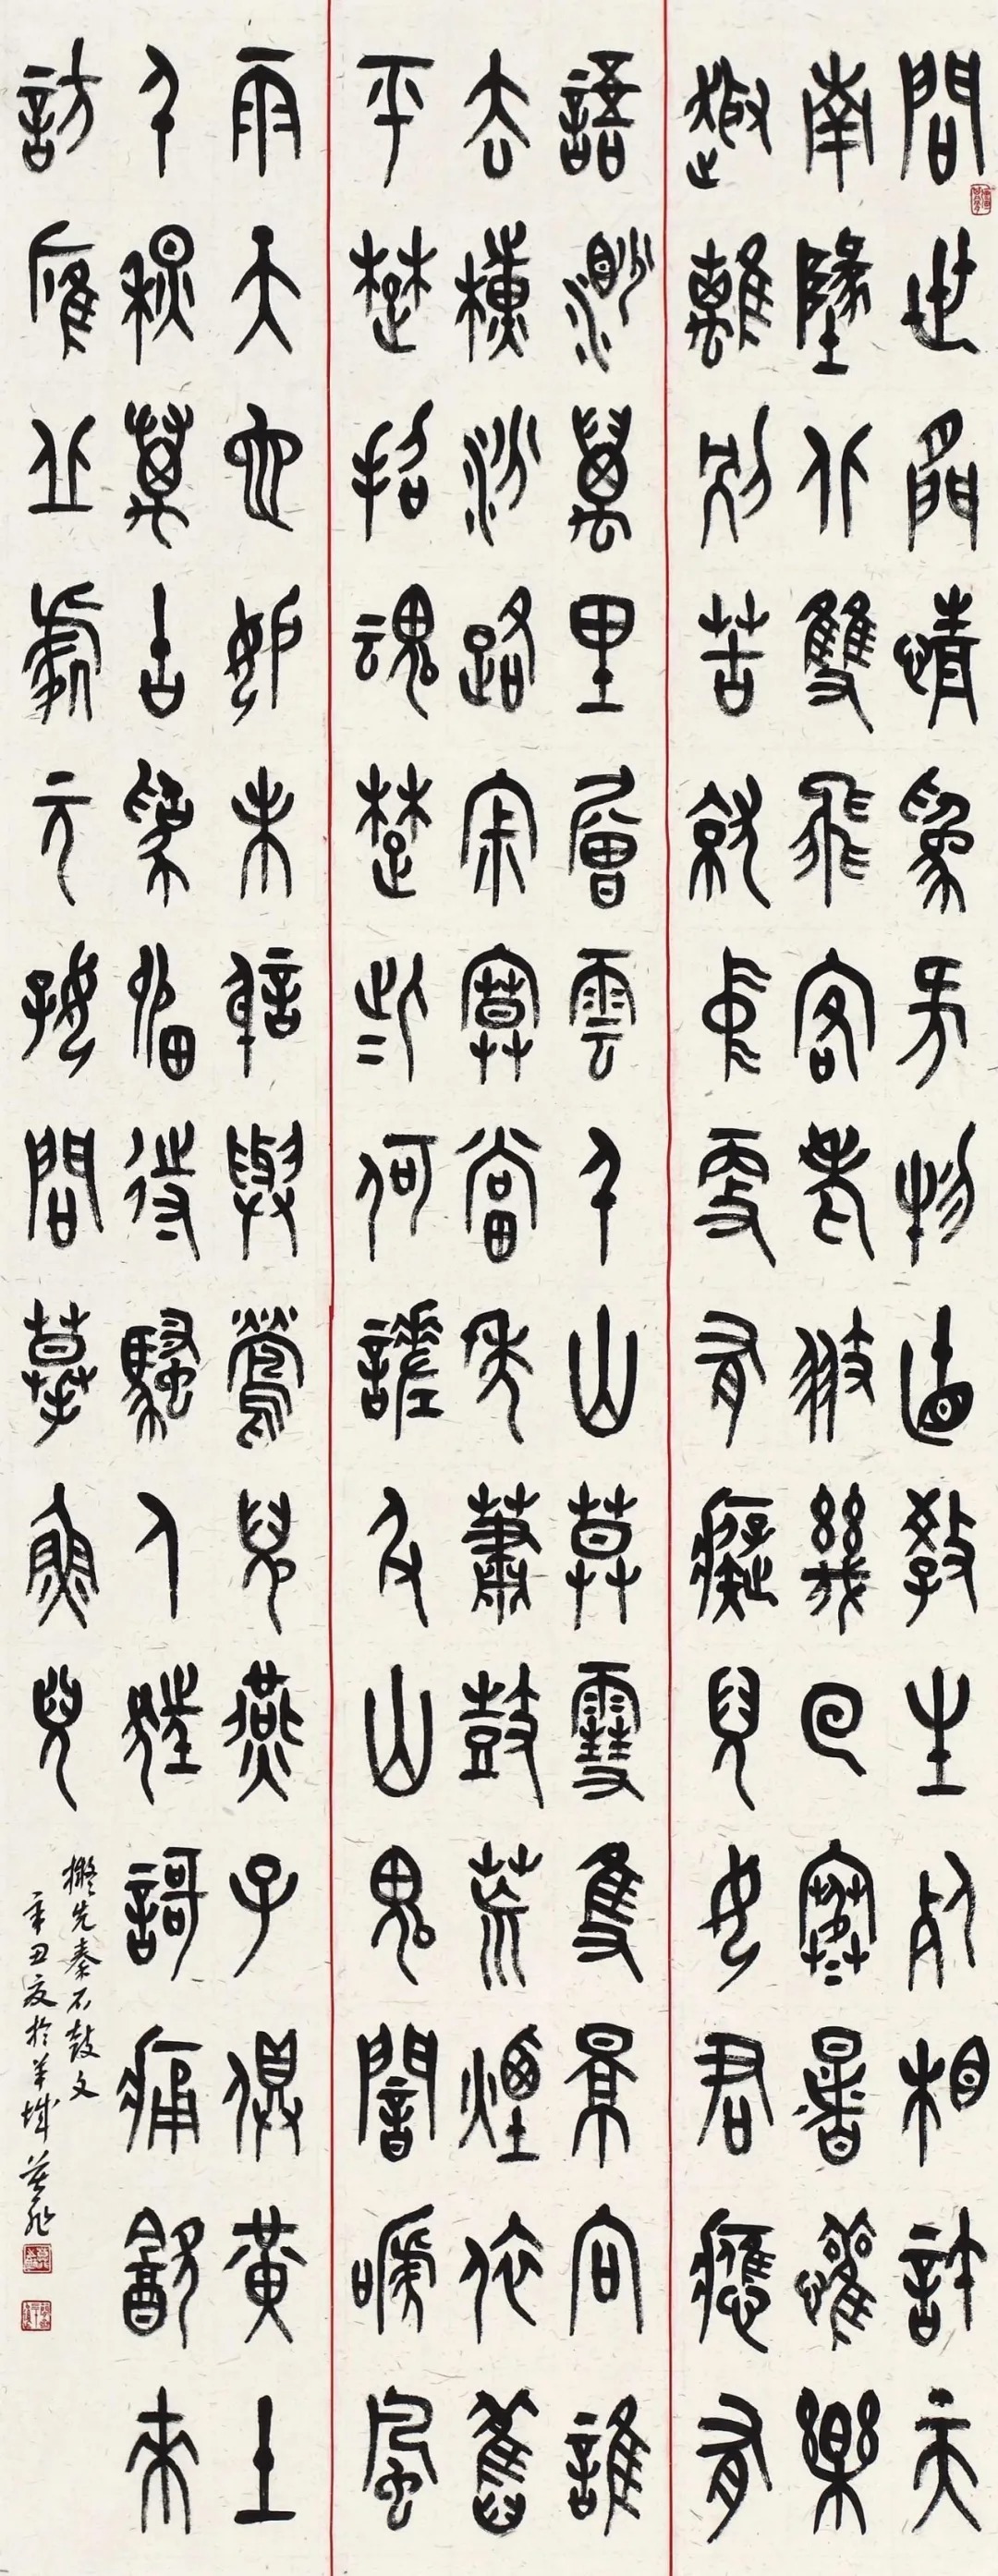 問世間情為何物直教生死相許天
南墬北雙飛客老翅幾回寒暑懽樂
趣離別苦就中更有癡兒女君應有
語渺萬里層雲千山莫雪隻景向誰
去橫汾路寂寞當年蕭鼓荒煙依舊
平楚招魂楚些何嗟及山鬼闇啼風
雨天也妒未信與鶯兒燕子俱黃土
千秋萬古為留待騷人狂謌痛飲來
訪雁丘處元好問摹魚兒
擬先秦石鼓文
辛丑夏於羊城